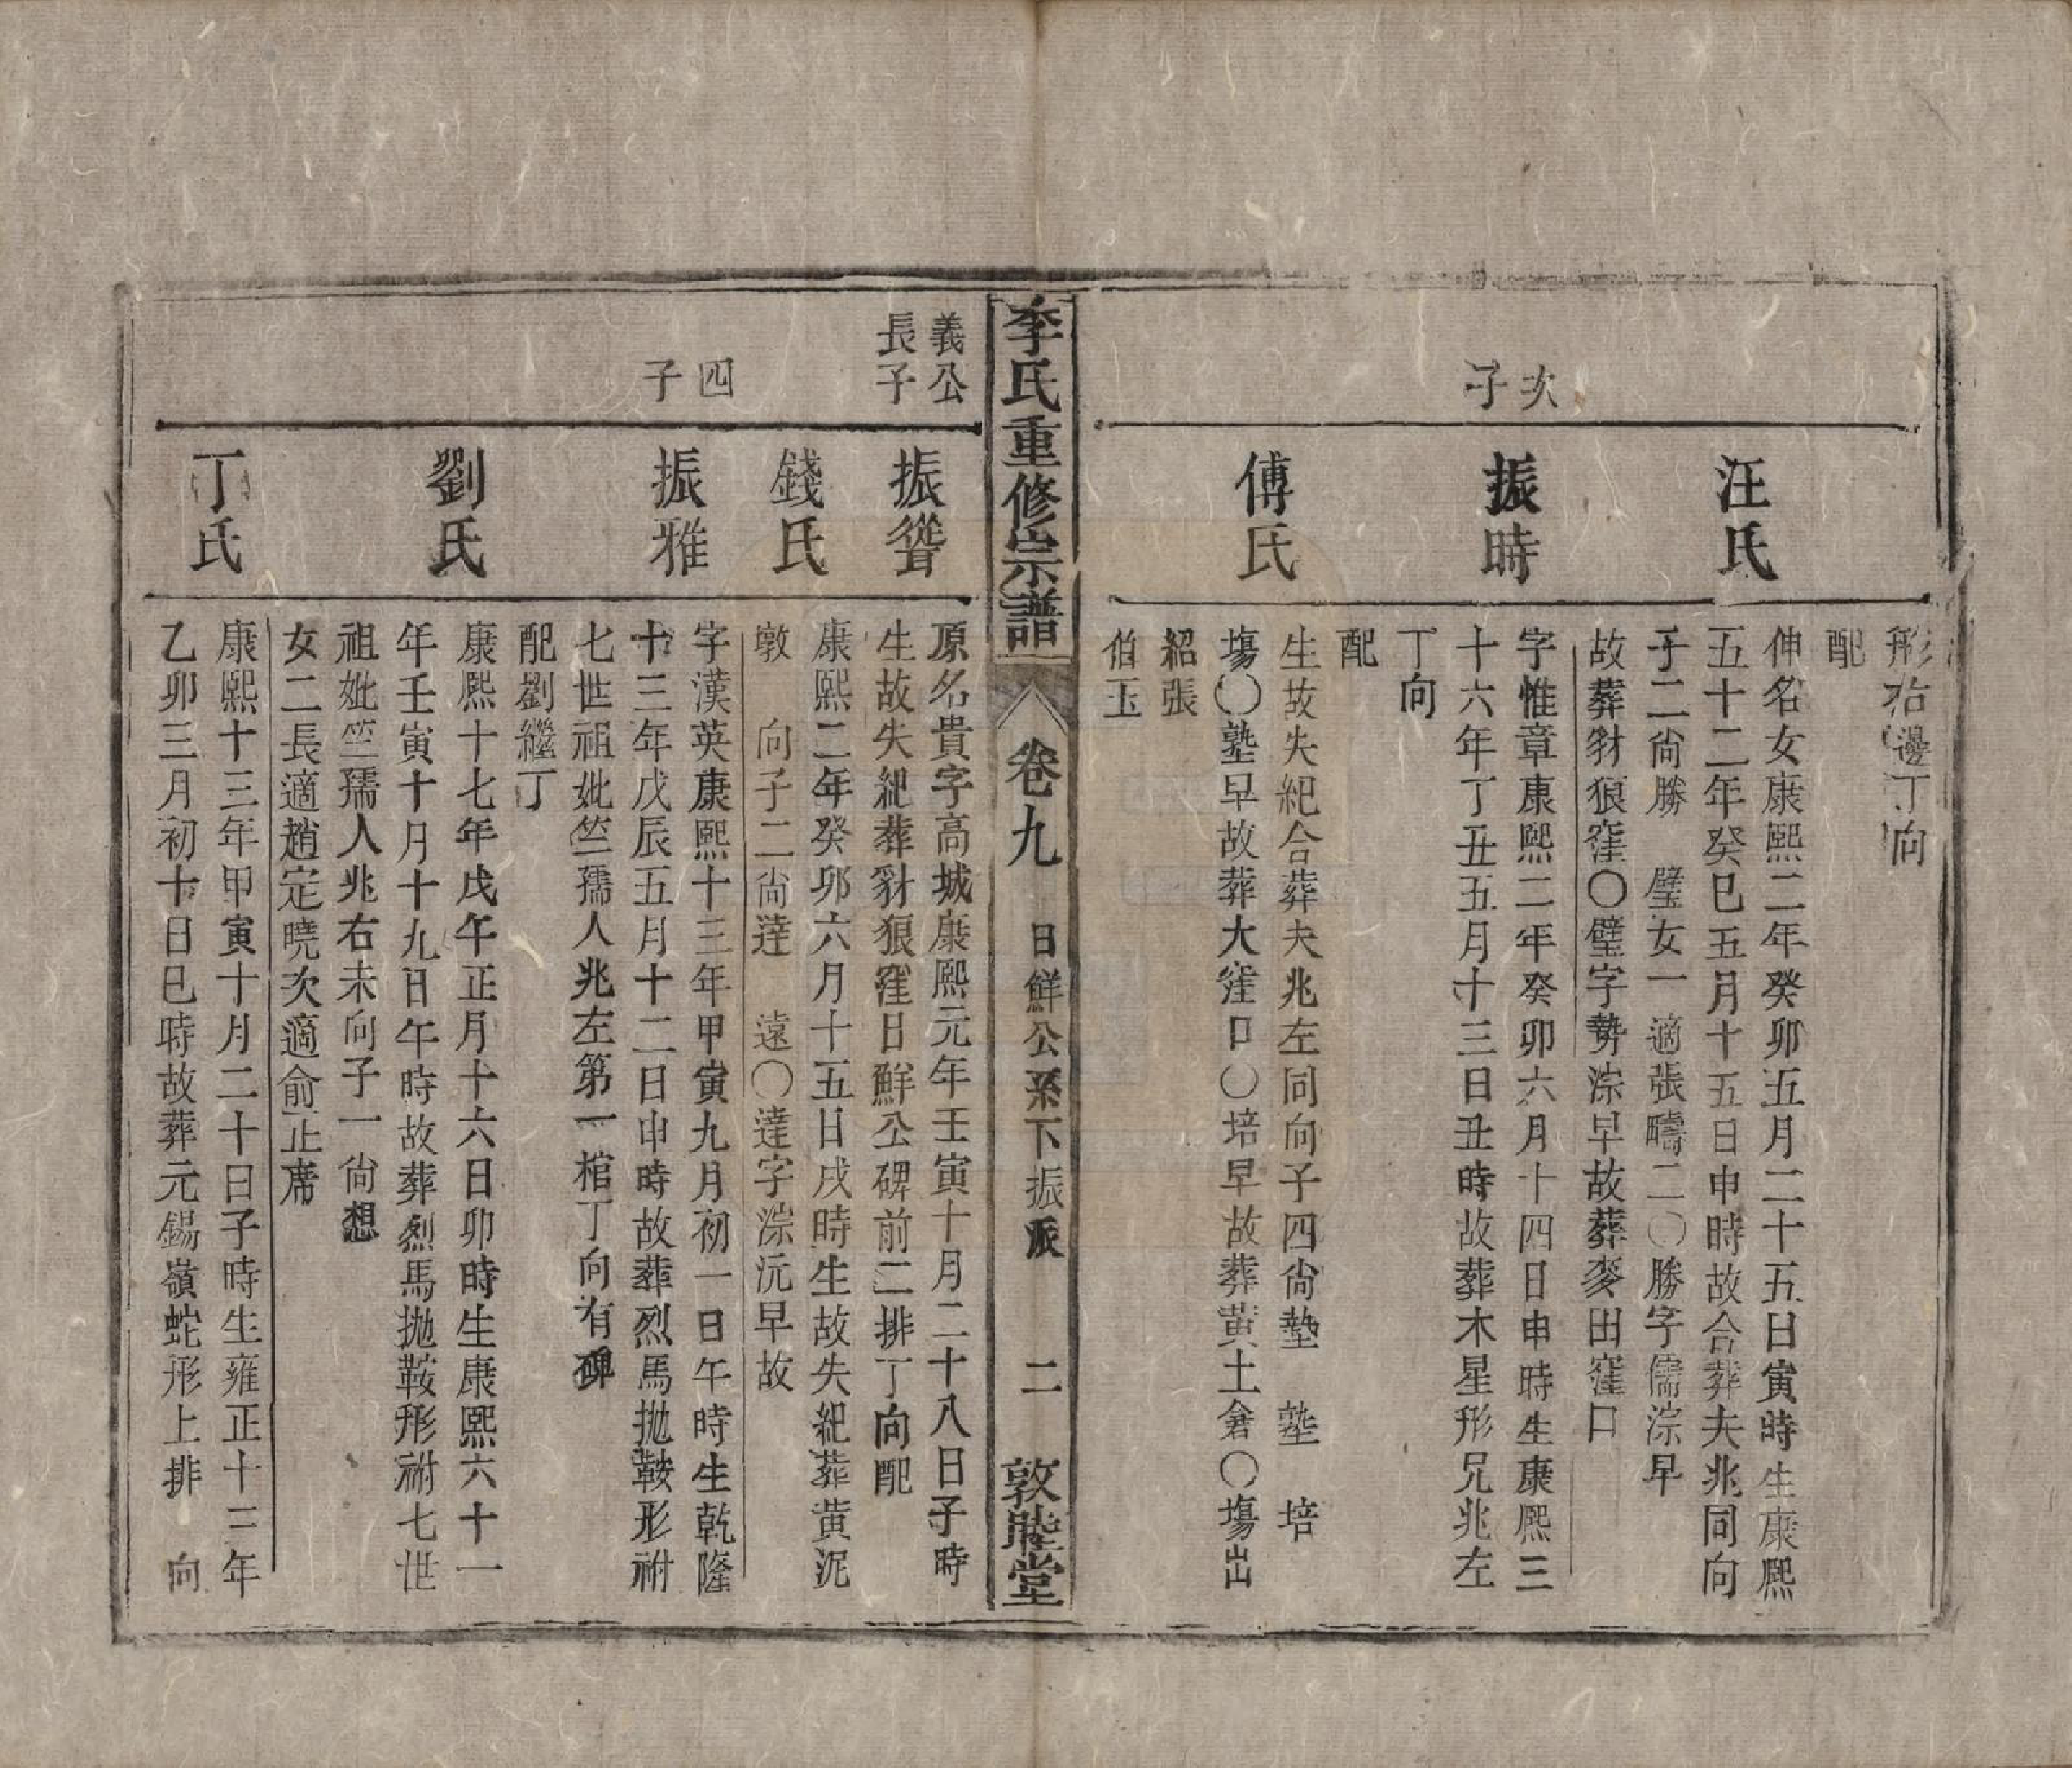 形右邊丁向
配
汪氏
伸名女康熙二年癸卯五月二十五日寅時生康熙
五十二年癸巳五月十五日申時故合葬夫兆同向
子二尙勝　璧女一　適張疇二〇勝字儒淙早
故葬豺狼窪〇璧字勢淙早故葬麥田窪口
次子
振時
字惟章康熙二年癸卯六月十四日申時生康熙三
十六年丁丑五月十三日丑時故葬木星形兄兆左
丁向
配
傅氏
生故失紀合葬夫兆左同向子四尙墊　塾　培
塲〇塾早故葬大窪口〇培早故葬黃土倉〇塲出
紹張
伯玉
李氏重修宗譜
卷九
日鮮公系下振派
二
敦睦堂
義公
長子
振聳
原名貴字高城康熙元年壬寅十月二十八日子時
生故失紀葬豺狼窪日鮮公碑前二排丁向配
錢氏
康熙二年癸卯六月十五日戌時生故失紀葬黃泥
墩　向子二尙達　遠〇達字淙沅早故
四子
振雅
字漢英康熙十三年甲寅九月初一日午時生乾隆
十三年戊辰五月十二日申時故葬烈馬拋鞍形祔
七世祖妣竺孺人兆左第一棺丁向有碑
配劉繼丁
劉氏
康熙十七年戊午正月十六日卯時生康熙六十一
年壬寅十月十九日午時故葬烈馬拋鞍形祔七世
祖妣竺孺人兆右未向子一尙想
女二長適趙定曉次適俞正席
丁氏
康熙十三年甲寅十月二十日子時生雍正十三年
乙卯三月初十日巳時故葬元錫嶺蛇形上排　向